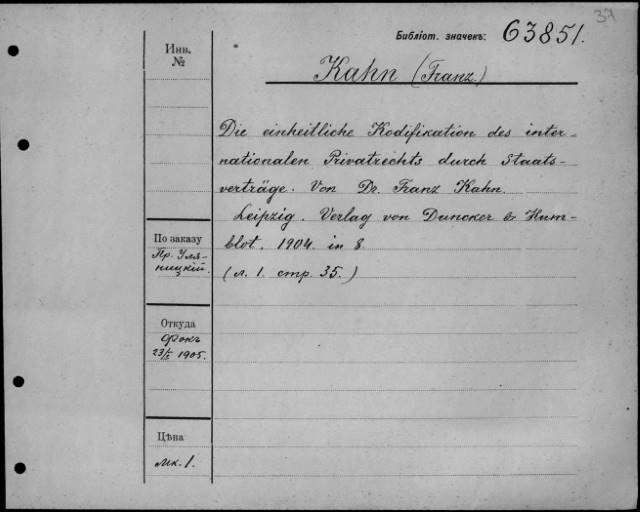 37
Библіот. значекъ: 63851.
Инв.
№
Kahn (Franz.)
Die einheitliche Kodifikation des inter-
nationalen Privatrechts durch Staats-
verträge. Von Dr. Franz Kahn.
Leipzig. Verlag von Duncker & Hum-
blot. 1904. in 8.
(л. 1. стр. 35.)
По заказу
Пр. Уля-
ницкій.
Откуда
Фокъ
23/X 1905.
Цѣна
мк. 1.